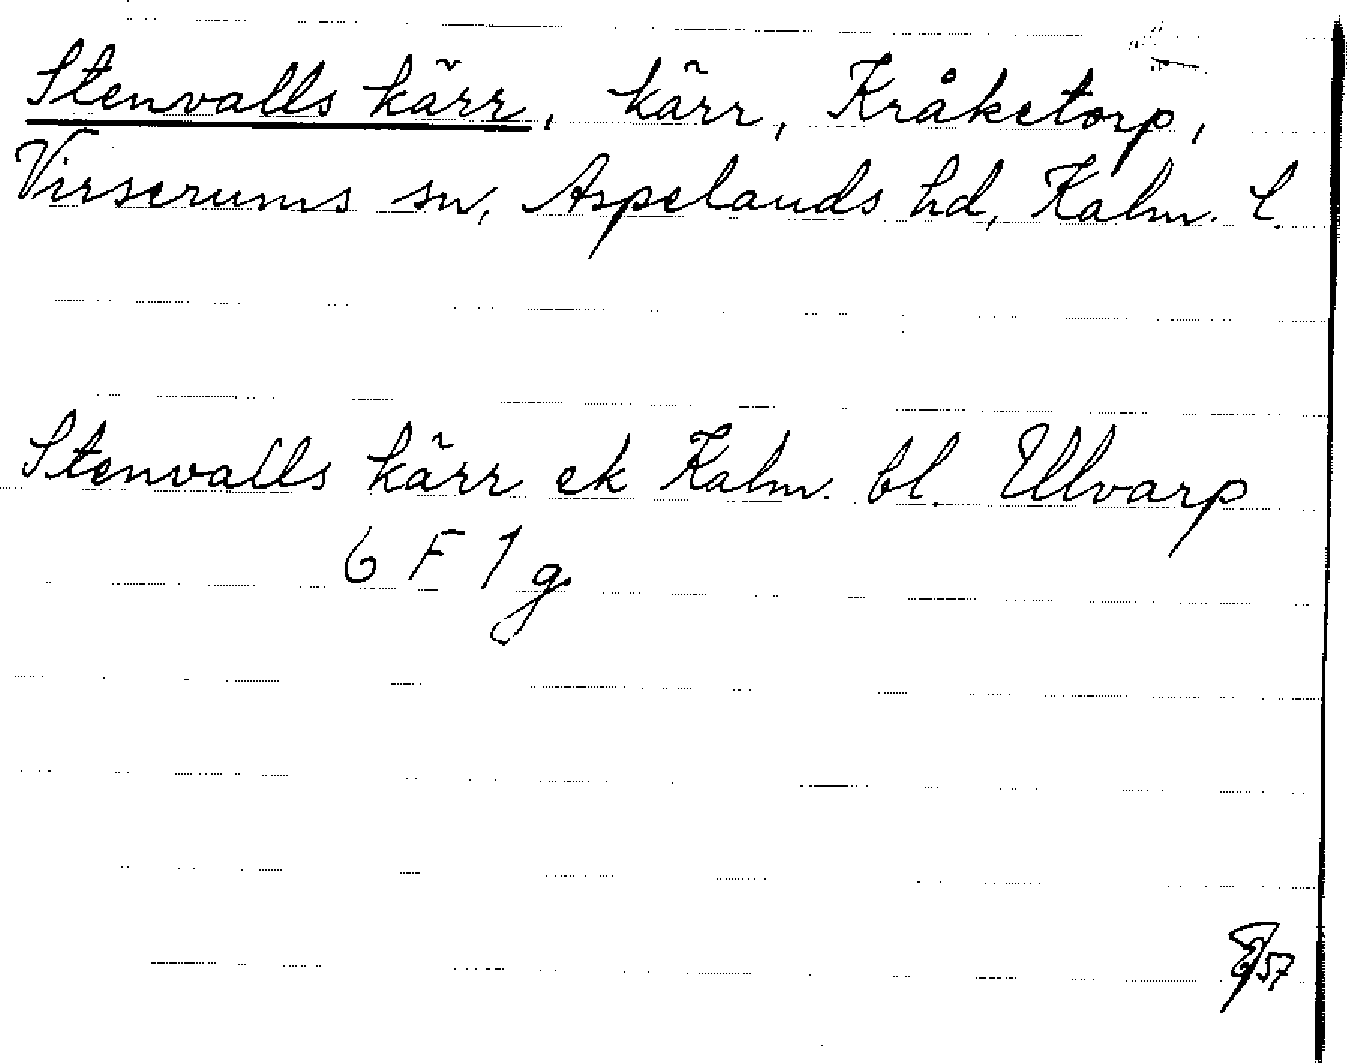 Stenvalls kärr, kärr, Kråketorp,
Virserums sn, Aspelands hd, Kalm. l.
Stenvalls kärr ek Kalm. bl. Ulvarp
6 F 1 g
57